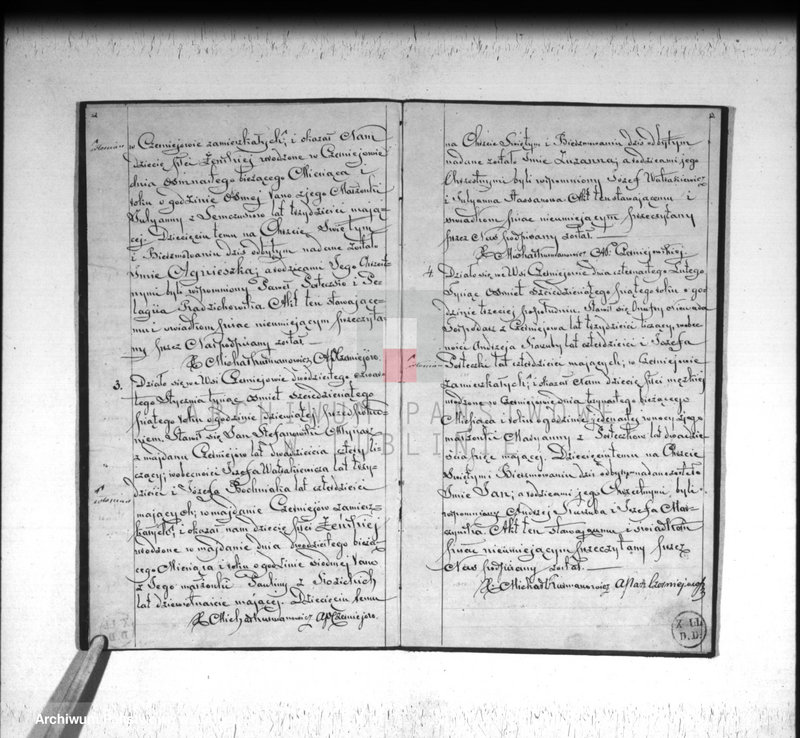 w Czerniejowie zamieszkałych; i okazał Nam
dziecię płci Żeńskiej urodzone w Czerniejowie
dnia osmnastego bieżącego Miesiąca i
roku o godzinie osmej rano z jego Małżonki
Julyanny z lat trzydzieści mają-
cej. Dziecięciu temu na Chrzcie Świętym
i Bierzmowaniu dziś odbytym nadane zostało
Imie Agnieszka; a rodzicami Jego Chrzest-
nymi byli wspomniony Paweł i Pe-
lagija Akt ten stawające-
mu i świadkom pisać nieumiejącym przeczyta-
ny przez Nas podpisany został —
X Michał Kurmanowicz A.P. Czerniejow.
3. Działo się we Wsi Czerniejowie dwudziestego
tego Stycznia tysiąc ośmset sześćdziesiątego
piątego roku o godzinie dziewiątej przed połud-
niem. Stawił się Jan Stefanowski Młynarz
z majdanu Czerniejow lat dwadzieścia cztery li-
czący; w obecności Józefa Waśakiewicza lat trzy-
dzieści i Józefa lat czterdzieści
mających; w majdanie Czerniejow zamiesz-
kałych; i okazał nam dziecię płci Żeńskiej
urodzone w majdanie dnia dwudziestego bieżą-
cego Miesiąca i roku o godzinie siódmej rano
z Jego małżonki Pauliny z
lat dziewietnaście mającej. Dziecięciu temu
X Michał Kurmanowicz A.P. Czerniejow.
2
na Chrzcie Świętym i Bierzmowaniu dziś odbytym
nadane zostało Imie Zuzanna; a rodzicami jego
Chrzestnymi byli wspomniony Józef Waśakiewicz
i Julyanna Akt ten stawającemu i
świadkom pisać nieumiejącym przeczytany
przez Nas podpisany został —
X Michał Kurmanowicz
4. Działo się we Wsi Czerniejowie dnia czternastego Lutego
Tysiąc ośmset sześćdziesiątego piątego roku o go-
dzinie trzeciej po południu. Stawił się Onufry
Gospodarz z Czerniejowa lat trzydzieści liczący, w obec-
ności Andrzeja lat czterdzieści i Józefa
lat czterdzieści mających; w Czerniejowie
zamieszkałych; i okazał Nam dziecię płci męzkiej
urodzone w Czerniejowie dnia trzynastego bieżącego
Miesiąca i roku o godzinie jedenastej w nocy z jego
małżonki Maryanny z lat dwadzie-
ścia pięć mającej. Dziecięciu temu na Chrzcie
Świętym i Bierzmowaniu dziś odbytym nadane zostało
Imie Jan; a rodzicami jego Chrzestnymi, byli
wspomniony Andrzej i Józefa
Akt ten stawającemu i świadkom
pisać nieumiejącym przeczytany przez
Nas podpisany został. —
X Michał Kurmanowicz
X LL
D. D.
ARCHIWUM PAŃSTWOWE
W LUBLINIE
Archiwum